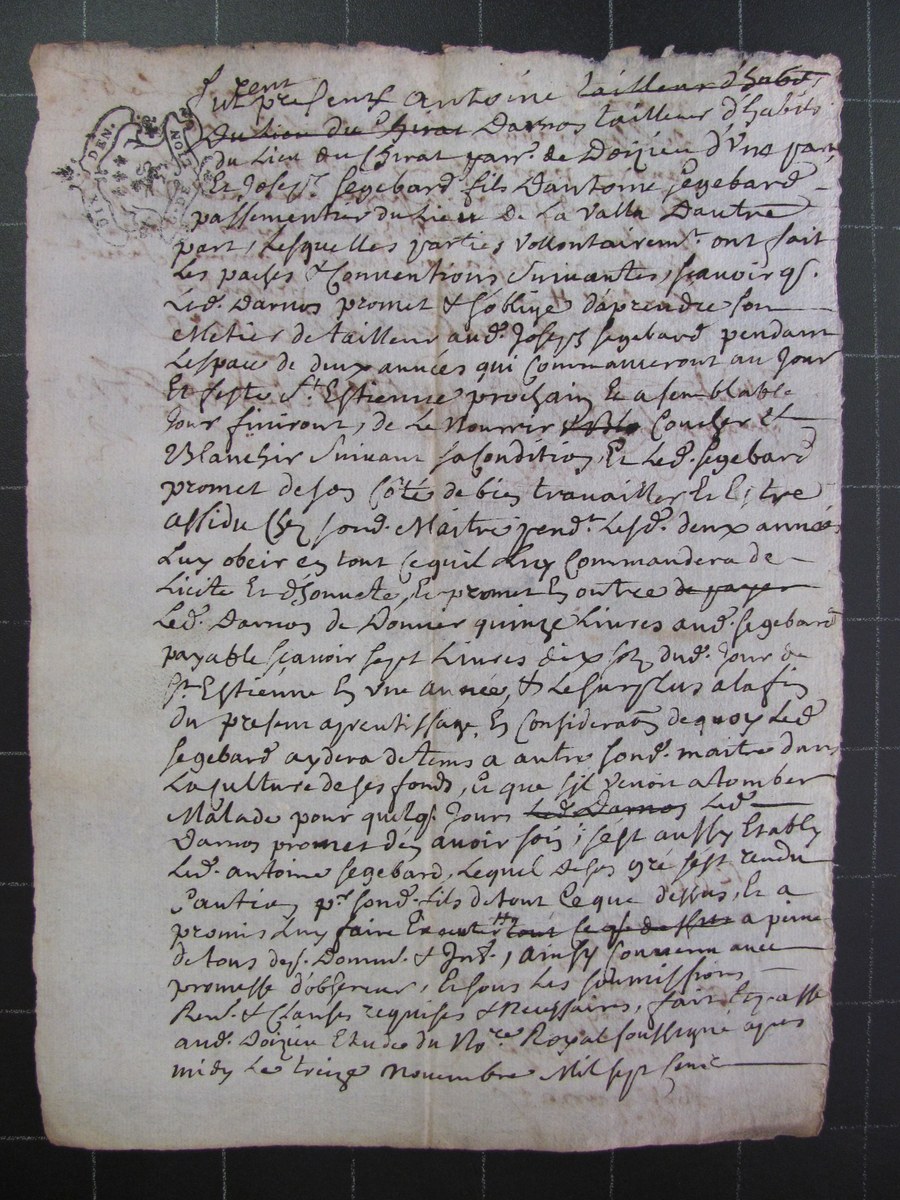 furent presents antoine tailleur d'habits
du lieu du Chirat Darnos tailleur d'habits
du Lieu du Chirat parr. de Doizieu d'une part
Et Joseph Segebard fils Dantoine Segebard
passementier du Lieu De La Valla Dautre
part, Lesquelles parties vollontairemt. ont fait
Les pactes & Conventions Suivantes, scavoir q.
Led. Darnos promet & soblige daprendre son
Metier de tailleur aud. Joseph Segebard pendant
Lespace de deux années qui Commanceront au Jour
Et feste St. Estienne prochain Et a semblable
Jour finiront, de Le Nourrir Coucher Et
Blanchir Suivant sa Condition, Et Led. Segebard
promet de son Côté de bien travailler Et Estre
assidu Chez sond. Maitre pendt. Lesd. deux années
Luy obeir en tout Cequil Luy Commandera de
Licite Et d'honnete, Et promet En outre de payer
Led. Darnos de Donner quinze Livres aud. Segebard
payable scavoir sept Livres dix sols dud. Jour de
St. Estienne En une année, & Le surplus a la fin
du present aprentissage, En Consideraon. de quoy Led.
Segebard aydera de tems a autre sond. maitre dans
La Culture de ses fonds, Et que sil venoit a tomber
Malade pour quelq. Jours Led. Darnos Led.
Darnos promet den avoir soin; sest aussy Etably
Led. antoine Segebard, Lequel de son gre sest rendu
Caution pr. sond. fils de tout Ceque dessus, Et a
promis Luy faire Executer tout Ce q. dessus a peine
de tous desp. Domm. & Int., ainsy Convenu avec
promesse d'observer, Et sous Les soumissions
Ren. & Clauses requises & Necessaires, fait Et passe
aud. Doizieu Etude du Nore. Royal soussigné apres
midy Le treize Novembre Mil sept Cent